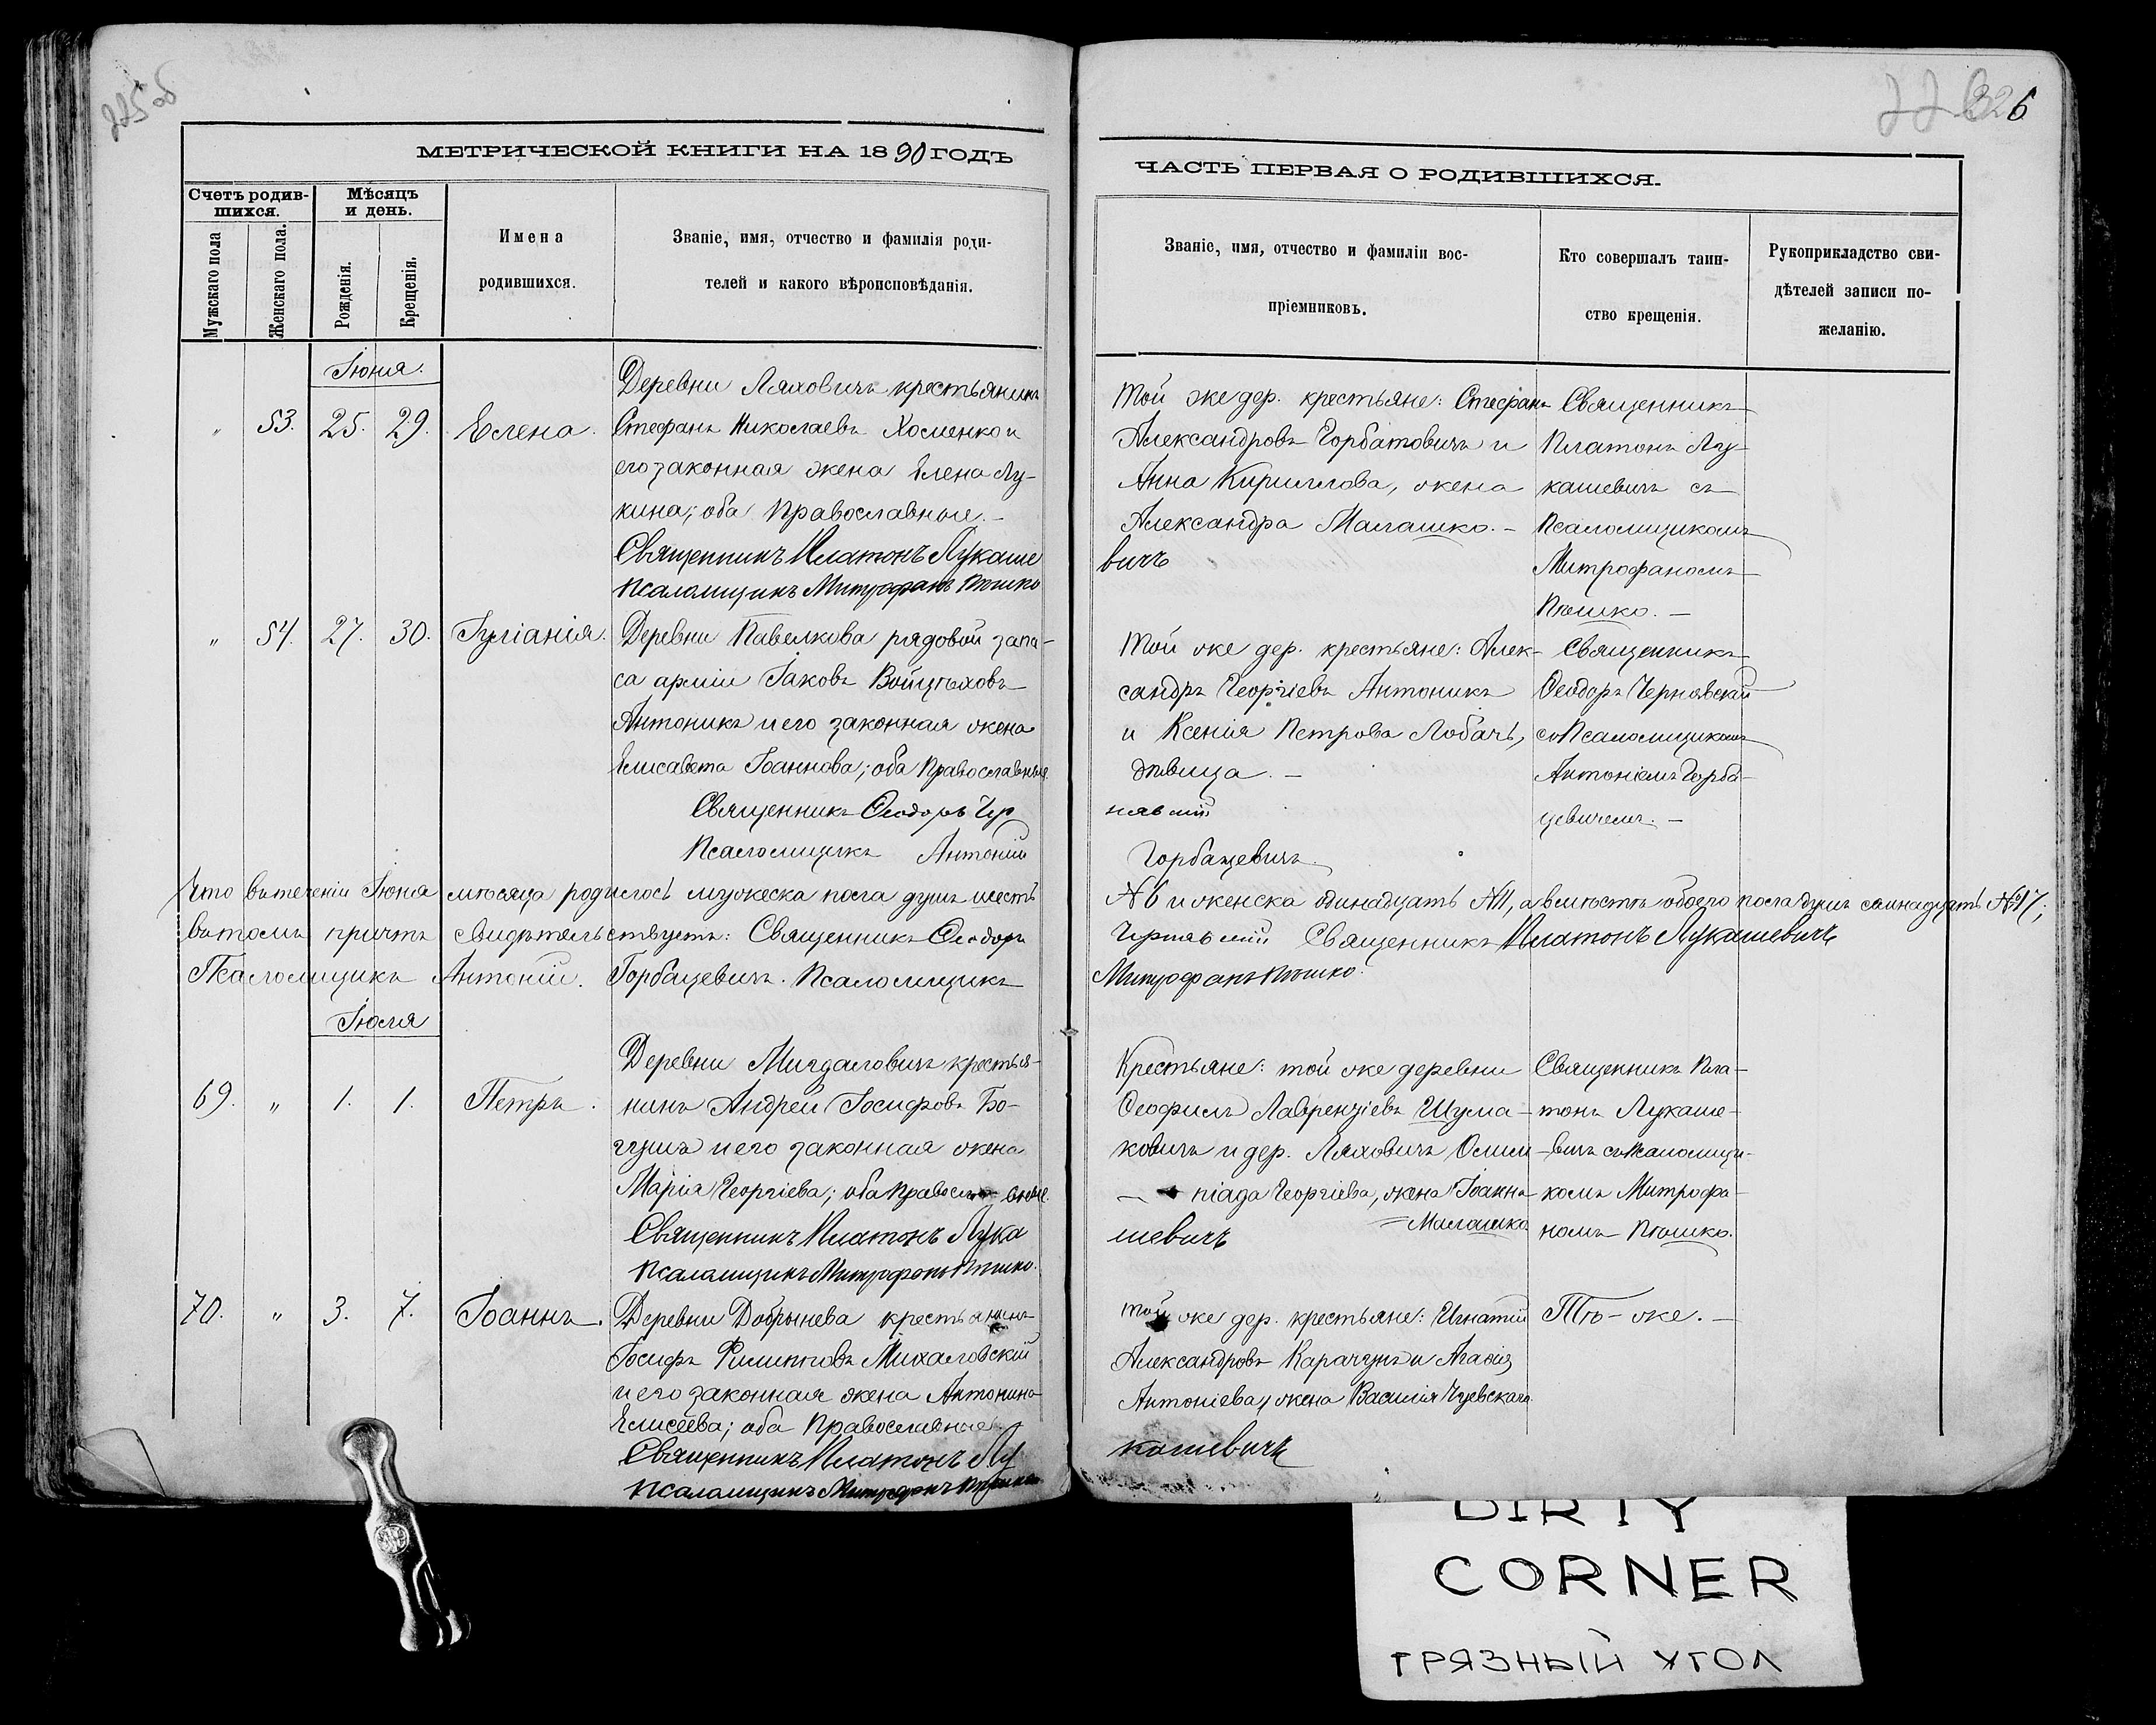 225 об
226
МЕТРИЧЕСКОЙ КНИГИ НА 1890 ГОДЪ
Счетъ родив-
шихся.
Мужскаго пола
Женскаго пола.
Мѣсяцъ
и день.
Рожденія.
Крещенія.
Имена
родившихся.
Званіе, имя, отчество и фамилія роди-
телей и какого вѣроисповѣданія.
ЧАСТЬ ПЕРВАЯ О РОДИВШИХСЯ.
Званіе, имя, отчество и фамиліи вос-
пріемниковъ.
Кто совершалъ таин-
ство крещенія.
Рукоприкладство сви-
дѣтелей записи по-
желанію.
Іюня.
„ 53. 25. 29. Елена.
Деревни Ляховичъ крестьянинъ
Стефанъ Николаевъ Хоменко и
его законная жена Елена Лу-
кина; оба Православные. –
Священникъ Платонъ Лукаше
Псаломщикъ Митрофанъ Пюшко
Той же дер. крестьяне: Стефанъ
Александровъ Горбатовичъ и
Анна Кириллова, жена
Александра Малашко. –
вичъ
Священникъ
Платонъ Лу-
кашевичъ съ
Псаломщикомъ
Митрофаномъ
Пюшко. –
„ 54. 27. 30. Іуліанія.
Деревни Павелкова рядовой запа-
са арміи Іаковъ Войцѣховъ
Антоникъ и его законная жена
Елисавета Іоаннова; оба Православные
Священникъ Ѳеодоръ Чер
Псаломщикъ Антоній
Той же дер. крестьяне: Алек-
сандръ Георгіевъ Антоникъ
и Ксенія Петрова Лобачъ,
дѣвица. –
нявскій
Горбацевичъ
Священникъ
Ѳеодоръ Чернявскій
съ Псаломщикомъ
Антоніемъ Горба-
цевичемъ. –
Что въ теченіи Іюня мѣсяца родилось мужеска пола душъ шесть
№ 6 и женска одинадцать № 11, а вмѣстѣ обоего пола душъ семнадцать № 17;
въ томъ причтъ свидѣтельствуетъ: Священникъ Ѳеодоръ
Чернявскій Священникъ Платонъ Лукашевичъ
Псаломщикъ Антоній. Горбацевичъ. Псаломщикъ
Митрофанъ Пюшко.
Іюля
69. „ 1. 1. Петръ.
Деревни Мигдаловичъ крестья-
нинъ Андрей Іосифовъ Бо-
гушъ и его законная жена
Марія Георгіева; оба Православные.
Священникъ Платонъ Лука
Псаломщикъ Митрофанъ Пюшко.
Крестьяне: той же деревни
Ѳеофилъ Лаврентіевъ Шума-
ковичъ и дер. Ляховичъ Олим-
піада Георгіева, жена Іоанна
Малашко.
шевичъ
Священникъ Пла-
тонъ Лукаше-
вичъ съ Псаломщи-
комъ Митрофа-
номъ Пюшко.
70. „ 3. 7. Іоаннъ.
Деревни Добрынева крестьянинъ
Іосифъ Филипповъ Михаловскій
и его законная жена Антонина
Елисеева; оба Православные
Священникъ Платонъ Лу
Псаломщикъ Митрофанъ Пюшко
Той же дер. крестьяне: Игнатій
Александровъ Карачунъ и Агафія
Антоніева, жена Василія Чуевскаго
кашевичъ
Тѣ-же. –
DIRTY
CORNER
ГРЯЗНЫЙ УГОЛ